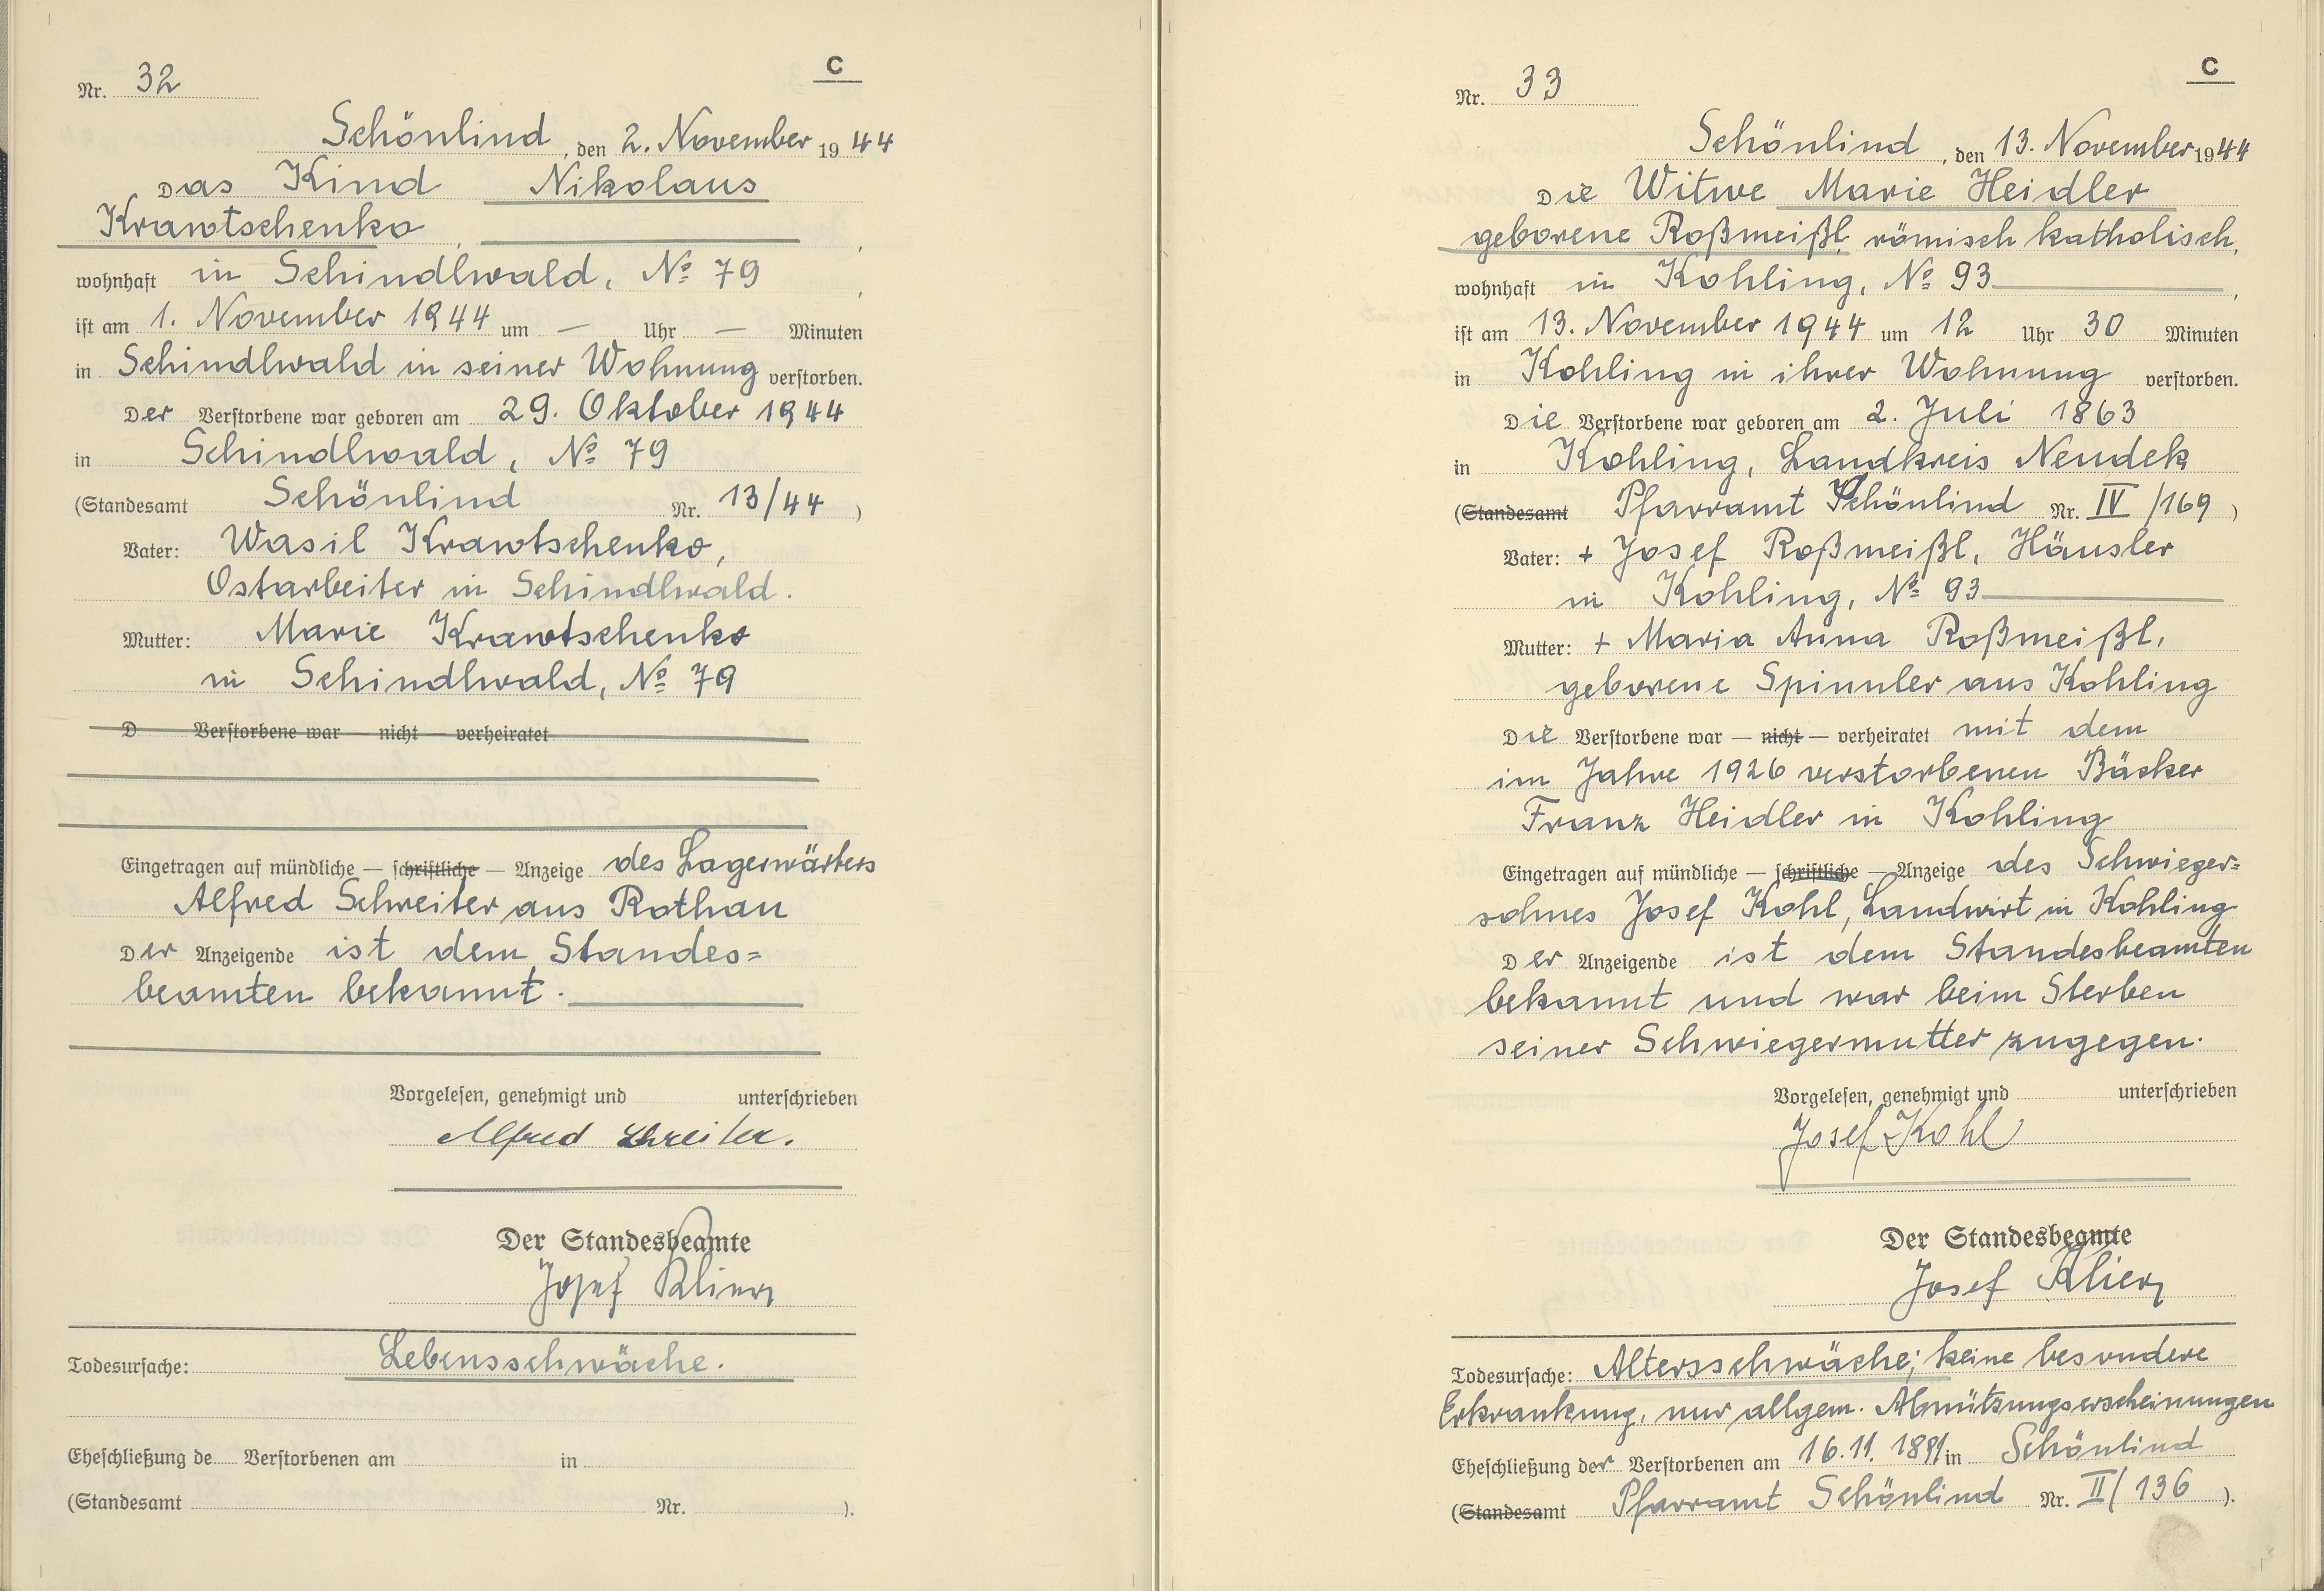 C
Nr. 32
Schönlind, den 2. November 1944
Das Kind Nikolaus
Krawtschenko,
wohnhaft in Schindlwald, No 79,
ist am 1. November 1944 um — Uhr — Minuten
in Schindlwald in seiner Wohnung verstorben.
Der Verstorbene war geboren am 29. Oktober 1944
in Schindlwald, No 79
(Standesamt Schönlind Nr. 13/44)
Vater: Wasil Krawtschenko,
Ostarbeiter in Schindlwald.
Mutter: Marie Krawtschenko
in Schindlwald, No 79
D Verstorbene war — nicht — verheiratet
Eingetragen auf mündliche — schriftliche — Anzeige des Lagerwärters
Alfred Schreiter aus Rothau
Der Anzeigende ist dem Standes=
beamten bekannt.
Vorgelesen, genehmigt und unterschrieben
Alfred Schreiter.
Der Standesbeamte
Josef Klier
Todesursache: Lebensschwäche.
Eheschließung de Verstorbenen am in
(Standesamt Nr. ).
C
Nr. 33
Schönlind, den 13. November 1944
Die Witwe Marie Heidler
geborene Roßmeißl, römisch katholisch,
wohnhaft in Kohling, No 93,
ist am 13. November 1944 um 12 Uhr 30 Minuten
in Kohling in ihrer Wohnung verstorben.
Die Verstorbene war geboren am 2. Juli 1863
in Kohling, Landkreis Neudek
(Standesamt Pfarramt Schönlind Nr. IV/169)
Vater: + Josef Roßmeißl, Häusler
in Kohling, No 93
Mutter: + Maria Anna Roßmeißl,
geborene Spinnler aus Kohling
Die Verstorbene war — nicht — verheiratet mit dem
im Jahre 1926 verstorbenen Bäcker
Franz Heidler in Kohling
Eingetragen auf mündliche — schriftliche — Anzeige des Schwieger=
sohnes Josef Kohl, Landwirt in Kohling
Der Anzeigende ist dem Standesbeamten
bekannt und war beim Sterben
seiner Schwiegermutter zugegen.
Vorgelesen, genehmigt und unterschrieben
Josef Kohl
Der Standesbeamte
Josef Klier
Todesursache: Altersschwäche; keine besondere
Erkrankung, nur allgem. Abnützungserscheinungen
Eheschließung der Verstorbenen am 16.11.1891 in Schönlind
(Standesamt Pfarramt Schönlind Nr. II/136).